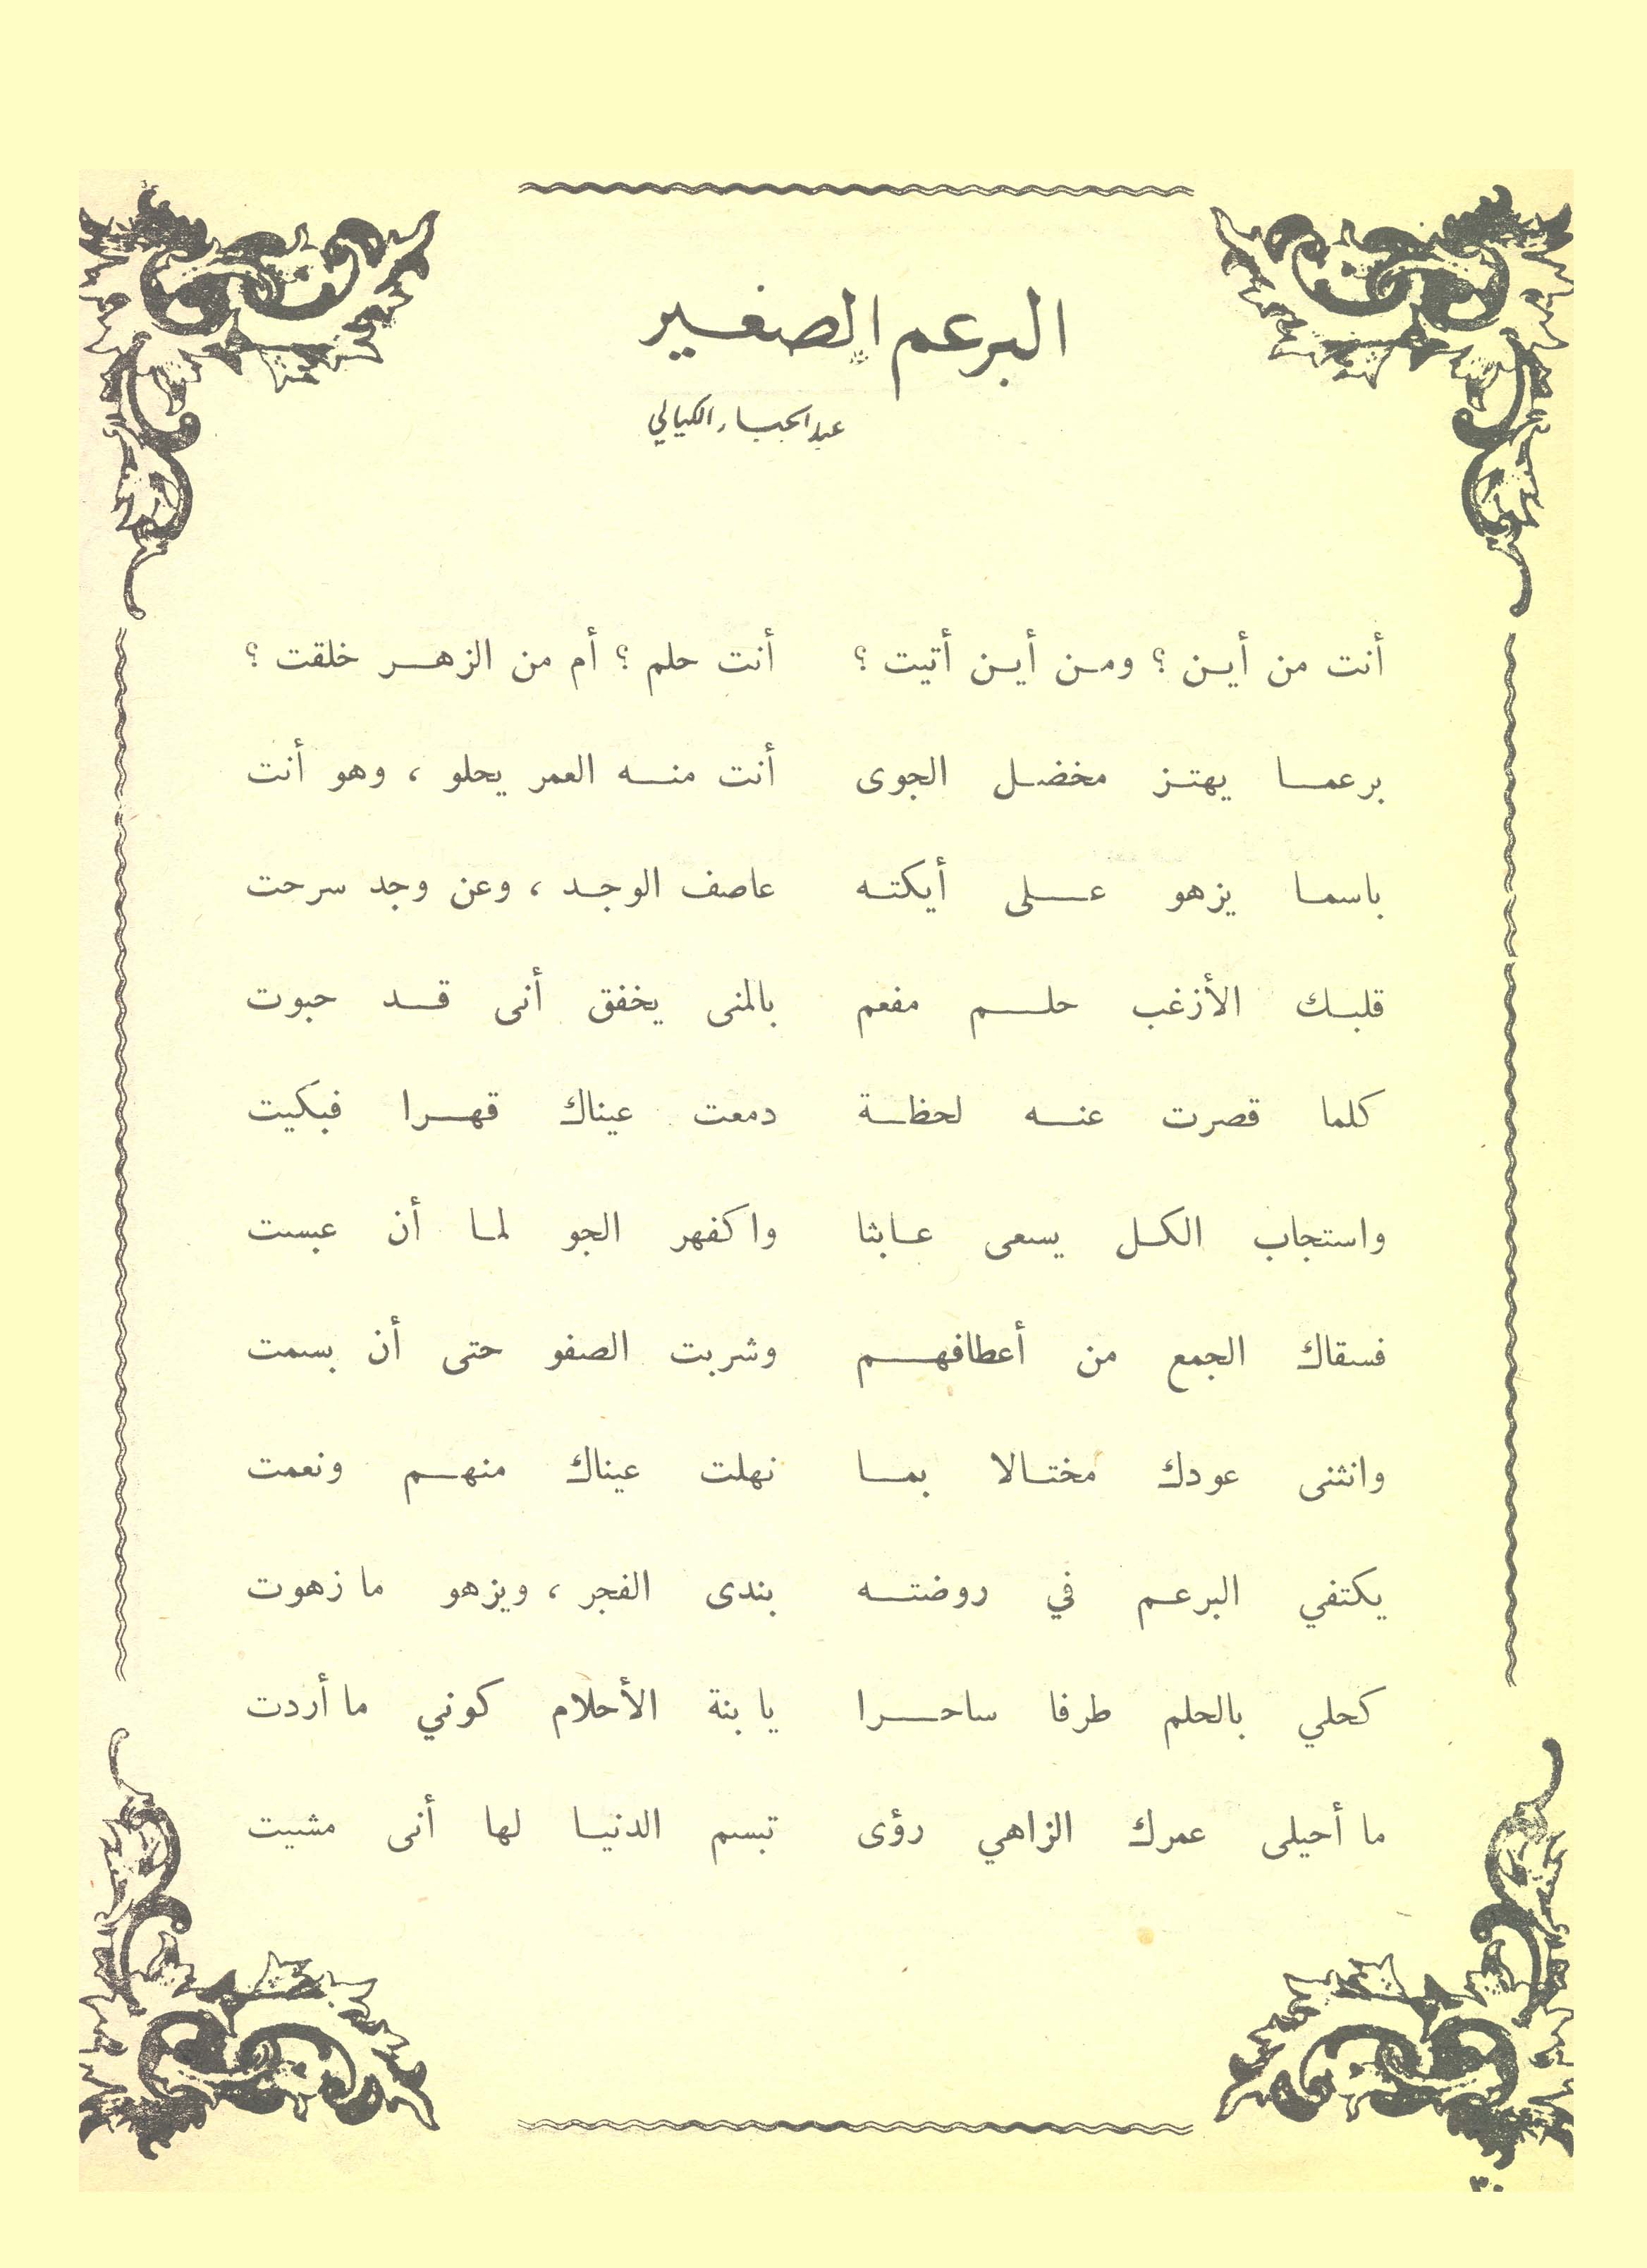 البرعم الصغير
عبد الجبار الكيالي
أنت من أين ؟ ومن أين أتيت ؟ أنت حلم ؟ أم من الزهر خلقت ؟
برعما يهتز مخضل الجوى أنت منه العمر يحلو ، وهو أنت
باسما يزهو على أيكته عاصف الوجد ، وعن وجد سرحت
قلبك الأزغب حلم مفعم بالمنى يخفق أنى قد حبوت
كلما قصرت عنه لحظة دمعت عيناك قهرا فبكيت
واستجاب الكل يسعى عابثا واكفهر الجو لما أن عبست
فسقاك الجمع من أعطافهم وشربت الصفو حتى أن بسمت
وانثنى عودك مختالا بما نهلت عيناك منهم ونعمت
يكتفي البرعم في روضته بندى الفجر ، ويزهو ما زهوت
كحلي بالحلم طرفا ساحرا يا بنة الأحلام كوني ما أردت
ما أحيلى عمرك الزاهي رؤى تبسم الدنيا لها أنى مشيت